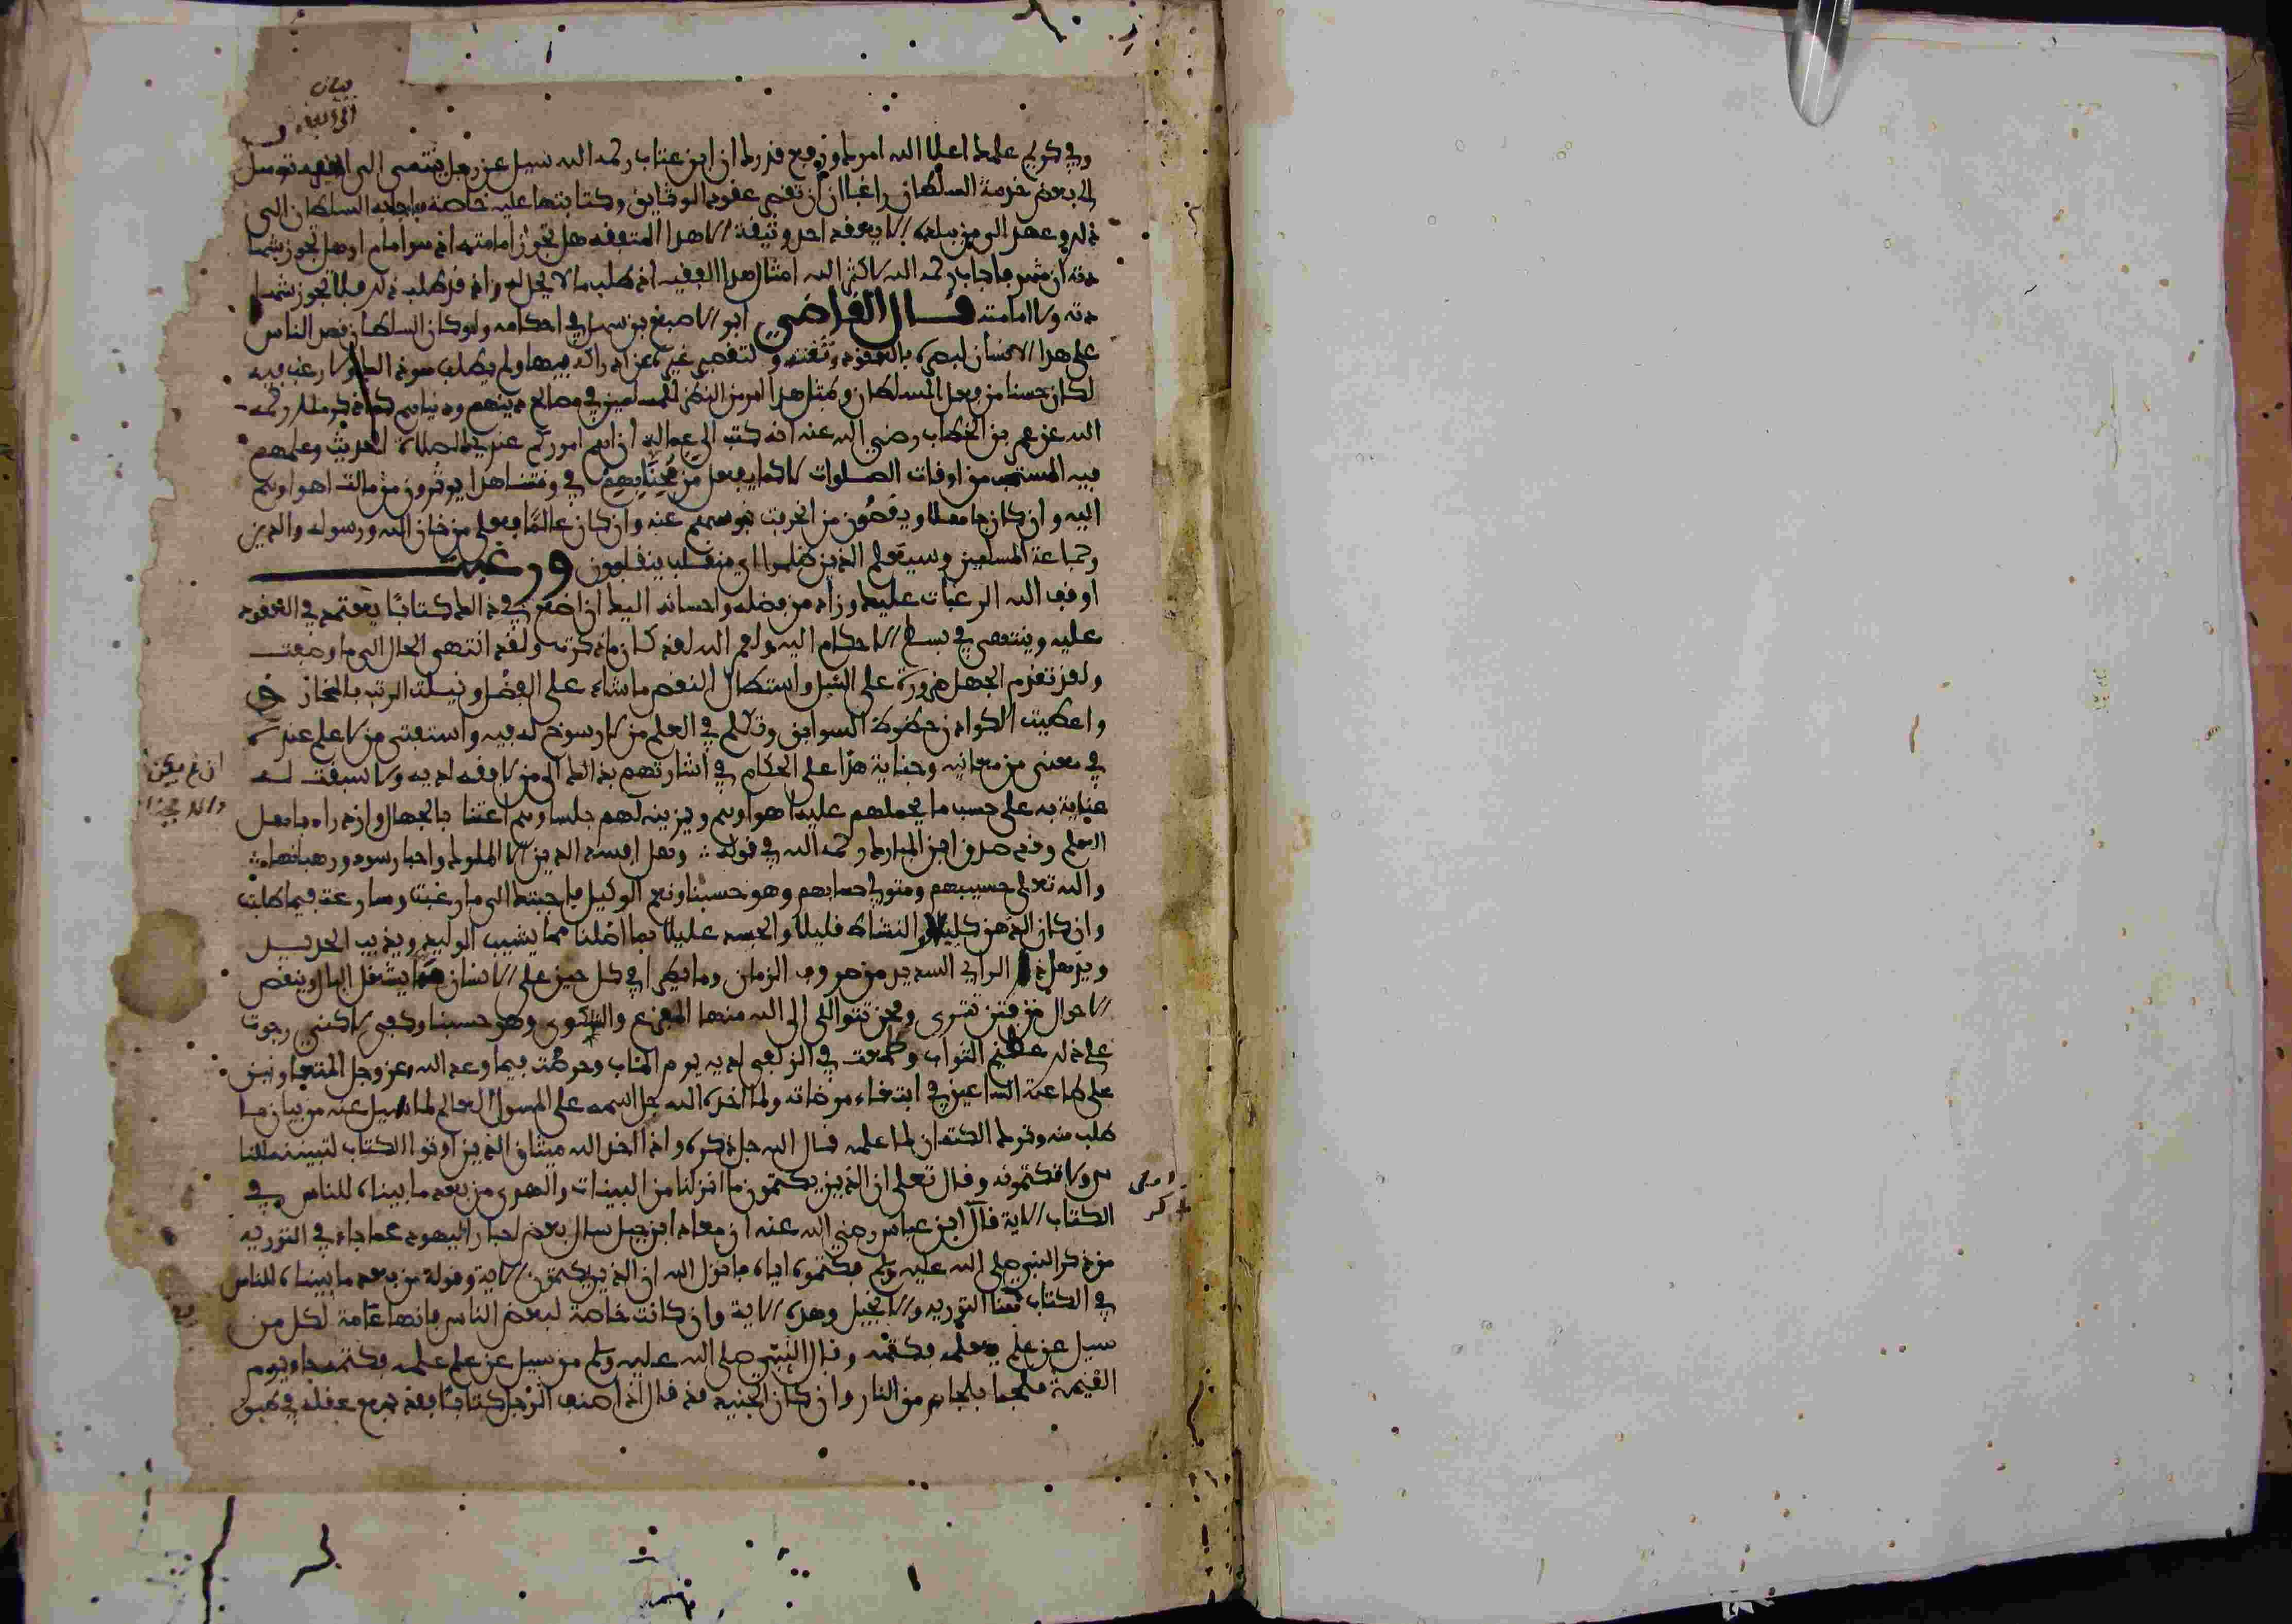 وفي كريم علمك اعلا الله امرك ورفع قدرك ان ابن عتاب رحمه الله سيل عن رجل ينتمى الى الفقه توسل
الى بعض خدمة السلطان راغبا ان تقصر عقود الوثايق وكتابتها عليه خاصة فاجابه السلطان الى
ذلك وعهد الى من ببلده الا يعقد احد وثيقة الا هذا المتفقه هل تجوز امامته اذ هو امام او هل تجوز شها
دته ان شهد فاجاب رحمه الله لا كثر الله امثال هذا الفقيه اذ طلب ما لا يحل له واذ قد طلب ذلك فلا تجوز شها
دته ولا امامته قال القاضي ابو الاصبغ بن سهل في احكامه ولو كان السلطان قصر الناس
على هذا الانسان لبصره بالعقود وثقته ولتقصير غيره عن ادراكه فيها ولم يطلب هو ذلك ولا رغب فيه
لكان حسنا من فعل السلطان وكمثل هذا امر من النظر للمسلمين في مصالح دينهم ودنياهم كما ذكر مالك رحمه
الله عن عمر بن الخطاب رضي الله عنه انه كتب الى عماله ان اهم اموركم عندي الصلاة الحديث وعلمهم
فيه المستحب من اوقات الصلوات لا كما يفعل من في وقتنا هذا يوثرون من مالت اهواوهم
اليه وان كان جاهلا ويقصون من انحرفت نفوسهم عنه وان كان عالما وفعلى من خان الله ورسوله والدين
وجماعة المسلمين وسيعلم الذين ظلموا اي منقلب ينقلبون ورغبت
اوقف الله الرغبات عليك وزاد من فضله واحسانه اليك ان اضع في ذلك كتابا يعتمد في العقود
عليه وينتهى في بساط الاحكام اليه ولعمر الله لقد كان ما ذكرت ولقد انتهى الحال الى ما وصفت
ولقد تقدم الجهل ضرورة على النبل واستطال النقص ما شاء على الفضل ونيلت الرتب بالمخازي
واعطيت الكوادن حظوظ السوابق وتكلم في العلم من لا رسوخ له فيه واستفتى من لا علم عنده
في معنى من معانيه وجناية هذا على الحكام في اشارتهم بذلك الى من لا فقه لديه ولا سبقت له
عناية به على حسب ما يحملهم عليه اهواوهم ويزينه لهم جلساوهم اعتنا بالجهال وازدراء باهل
العلم وقد صدق ابن المبارك رحمه الله في قوله وهل افسد الدين الا الملوك واحبار سوء ورهبانها
والله تعالى حسيبهم ومتولي حسابهم وهو حسبنا ونعم الوكيل فاجبتك الى ما رغبت وسارعت فيما طلبت
وان كان الذهن كليلا والنشاط قليلا والجسد عليلا بما اظلنا مما يشيب الوليد ويذيب الحديد
ويذهل ذا الراي السديد من صروف الزمان وما يطرا في كل حين على الانسان مما يشغل البال وينغص
الاحوال من فتن تترى ومحن تتوالى الى الله منها المفزع والشكوى وهو حسبنا وكفى لاكنني رجوت
على ذلك عظيم الثواب وطمعت في الزلفى لديه يوم المئاب وحرصت فيما وعد الله عز وجل المتعاونين
على طاعته الساعين في ابتغاء مرضاته ولما اخذه الله جل اسمه على المسول العالم لما سيل عنه من بيان ما
طلب منه وترك الكتمان لما علمه قال الله جل ذكره واذ اخذ الله ميثاق الذين اوتوا الكتاب لتبيننه للنا
س ولا تكتمونه وقال تعلى ان الذين يكتمون ما انزلنا من البينات والهدى من بعد ما بيناه للناس في
الكتاب الاية قال ابن عباس رضي الله عنه ان معاذ ابن جبل سال بعض احبار اليهود عما جاء في التورية
من ذكر النبي صلى الله عليه وسلم فكتموه اياه فانزل الله ان الذين يكتمون الاية وقوله من بعد ما بيناه للناس
في الكتاب معنا التورية والانجيل وهذه الاية وان كانت خاصة لبعض الناس فانها عامة لكل من
سيل عن علم يعلمه فكتمه وقال النبي صلى الله عليه وسلم من سيل عن علم علمه فكتمه جاء يوم
القيمة ملجما بلجام من النار وان كان الجنيد قد قال اذا صنف الرجل كتابا فقد جمع عقله في طبق